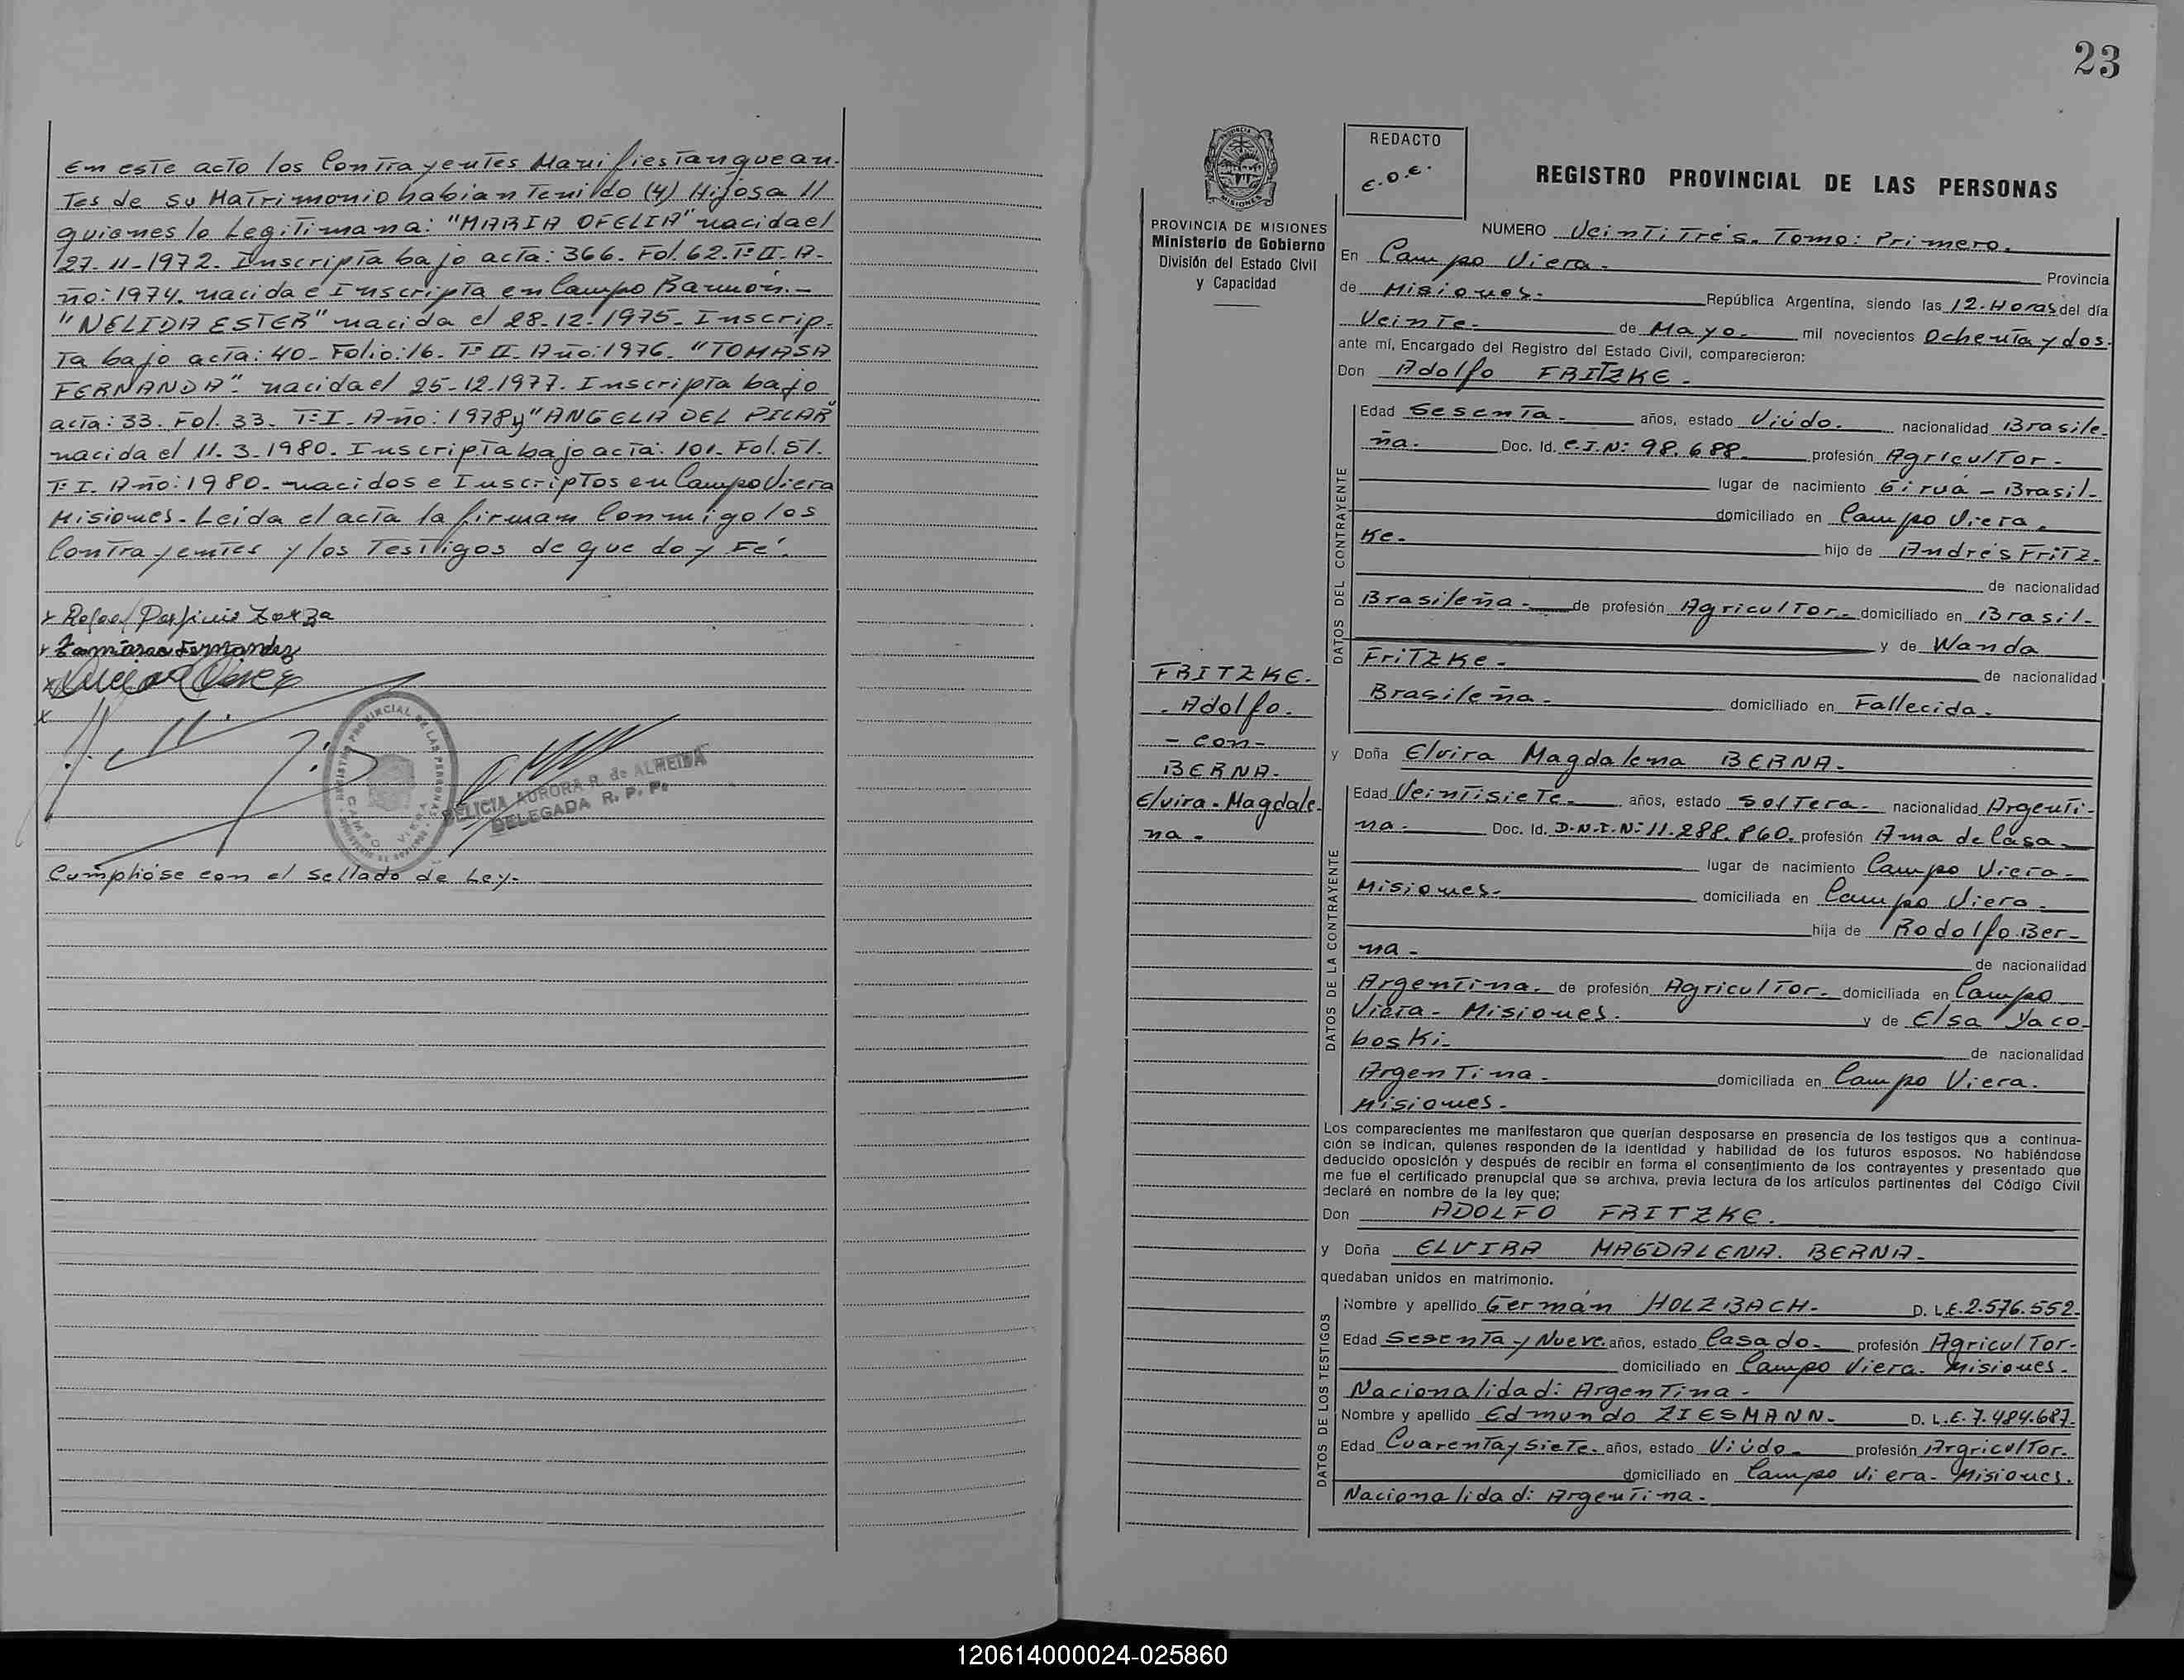 En este acto los Contrayentes Manifiestan que an-
Tes de su Matrimonio habian Tenido (4) Hijos a 
quienes lo Legitimana: "MARIA OFELIA" nacida el
27-11-1972. Inscripta bajo acta: 366. Fol. 62. T: II. A-
ño: 1974. nacida e Inscripta en Campo Ramón.-
"NELIDA ESTER" nacida el 28-12-1975. Inscrip-
Ta bajo acta: 40. Folio: 16. T: II. Año: 1976. "TOMASA
FERNANDA". nacida el 25-12-1977. Inscripta bajo
acta: 33. Fol. 33. T: I. Año: 1978 y "ANGELIA DEL PILAR"
nacida el 11.3.1980. Inscripta bajo acta: 101. Fol. 51.
T: I. Año: 1980. nacidos e Inscriptos en Campo Viera
Misiones. Leida el acta la firman Conmigo los
Contrayentes y los Testigos de que doy Fe.
Fernandez
REGISTRO PROVINCIAL DE LAS PERSONAS
CAMPO VIERA
DELICIA AURORA R. de ALMEIDA
DELEGADA R. P. P.
Cumplióse con el sellado de Ley-
23
PROVINCIA DE
MISIONES
PROVINCIA DE MISIONES
Ministerio de Gobierno
División del Estado Civil
y Capacidad
FRITZKE.
Adolfo.
- con -
BERNA.
Elvira. Magdale-
na -
REDACTO
E.O.E.
REGISTRO PROVINCIAL DE LAS PERSONAS
NUMERO Veinti Trés. Tomo: Primero.
En Campo Viera. Provincia
de Misiones. República Argentina, siendo las 12. Horas del día
Veinte- de Mayo- mil novecientos Ochenta y dos.
ante mí, Encargado del Registro del Estado Civil, comparecieron:
Don Adolfo FRITZKE.
DATOS DEL CONTRAYENTE
Edad Sesenta- años, estado Viúdo. nacionalidad Brasile-
ña. Doc. Id. C.I.N: 98.688 profesión Agricultor-
lugar de nacimiento Giruá - Brasil-
domiciliado en Campo Viera.
hijo de Andrés Fritz-
Ke.
de nacionalidad
Brasileña- de profesión Agricultor- domiciliado en Brasil-
y de Wanda
FriTzKe.
de nacionalidad
Brasileña. domiciliado en Fallecida-
y Doña Elvira Magdalena BERNA-
DATOS DE LA CONTRAYENTE
Edad Veintisiete- años, estado Soltera- nacionalidad Argenti-
na- Doc. Id. D.N.I.N: 11.288.860. profesión Ama de Casa-
lugar de nacimiento Campo Viera-
Misiones- domiciliada en Campo Viera-
hija de Rodolfo Ber-
na-
de nacionalidad
Argentina. de profesión Agricultor- domiciliada en Campo
Viera- Misiones. y de Elsa Yaco-
bosKi-
de nacionalidad
Argentina- domiciliada en Campo Viera.
Misiones-
Los comparecientes me manifestaron que querían desposarse en presencia de los testigos que a continua-
ción se indican, quienes responden de la identidad y habilidad de los futuros esposos. No habiéndose
deducido oposición y después de recibir en forma el consentimiento de los contrayentes y presentado que
me fue el certificado prenupcial que se archiva, previa lectura de los artículos pertinentes del Código Civil
declaré en nombre de la ley que;
Don ADOLFO FRITZKE.
y Doña ELVIRA MAGDALENA. BERNA-
quedaban unidos en matrimonio.
DATOS DE LOS TESTIGOS
Nombre y apellido Germán HOLZBACH- D. L.E. 2.576.552-
Edad Sesenta y Nueve. años, estado Casado- profesión Agricultor-
domiciliado en Campo Viera- Misiones-
Nacionalidad: Argentina-
Nombre y apellido Edmundo ZIESMANN- D. L.E. 7.484.687-
Edad Cuarenta y Siete. años, estado Viúdo- profesión Argricultor.
domiciliado en Campo Viera- Misiones.
Nacionalidad: Argentina.
120614000024-025860